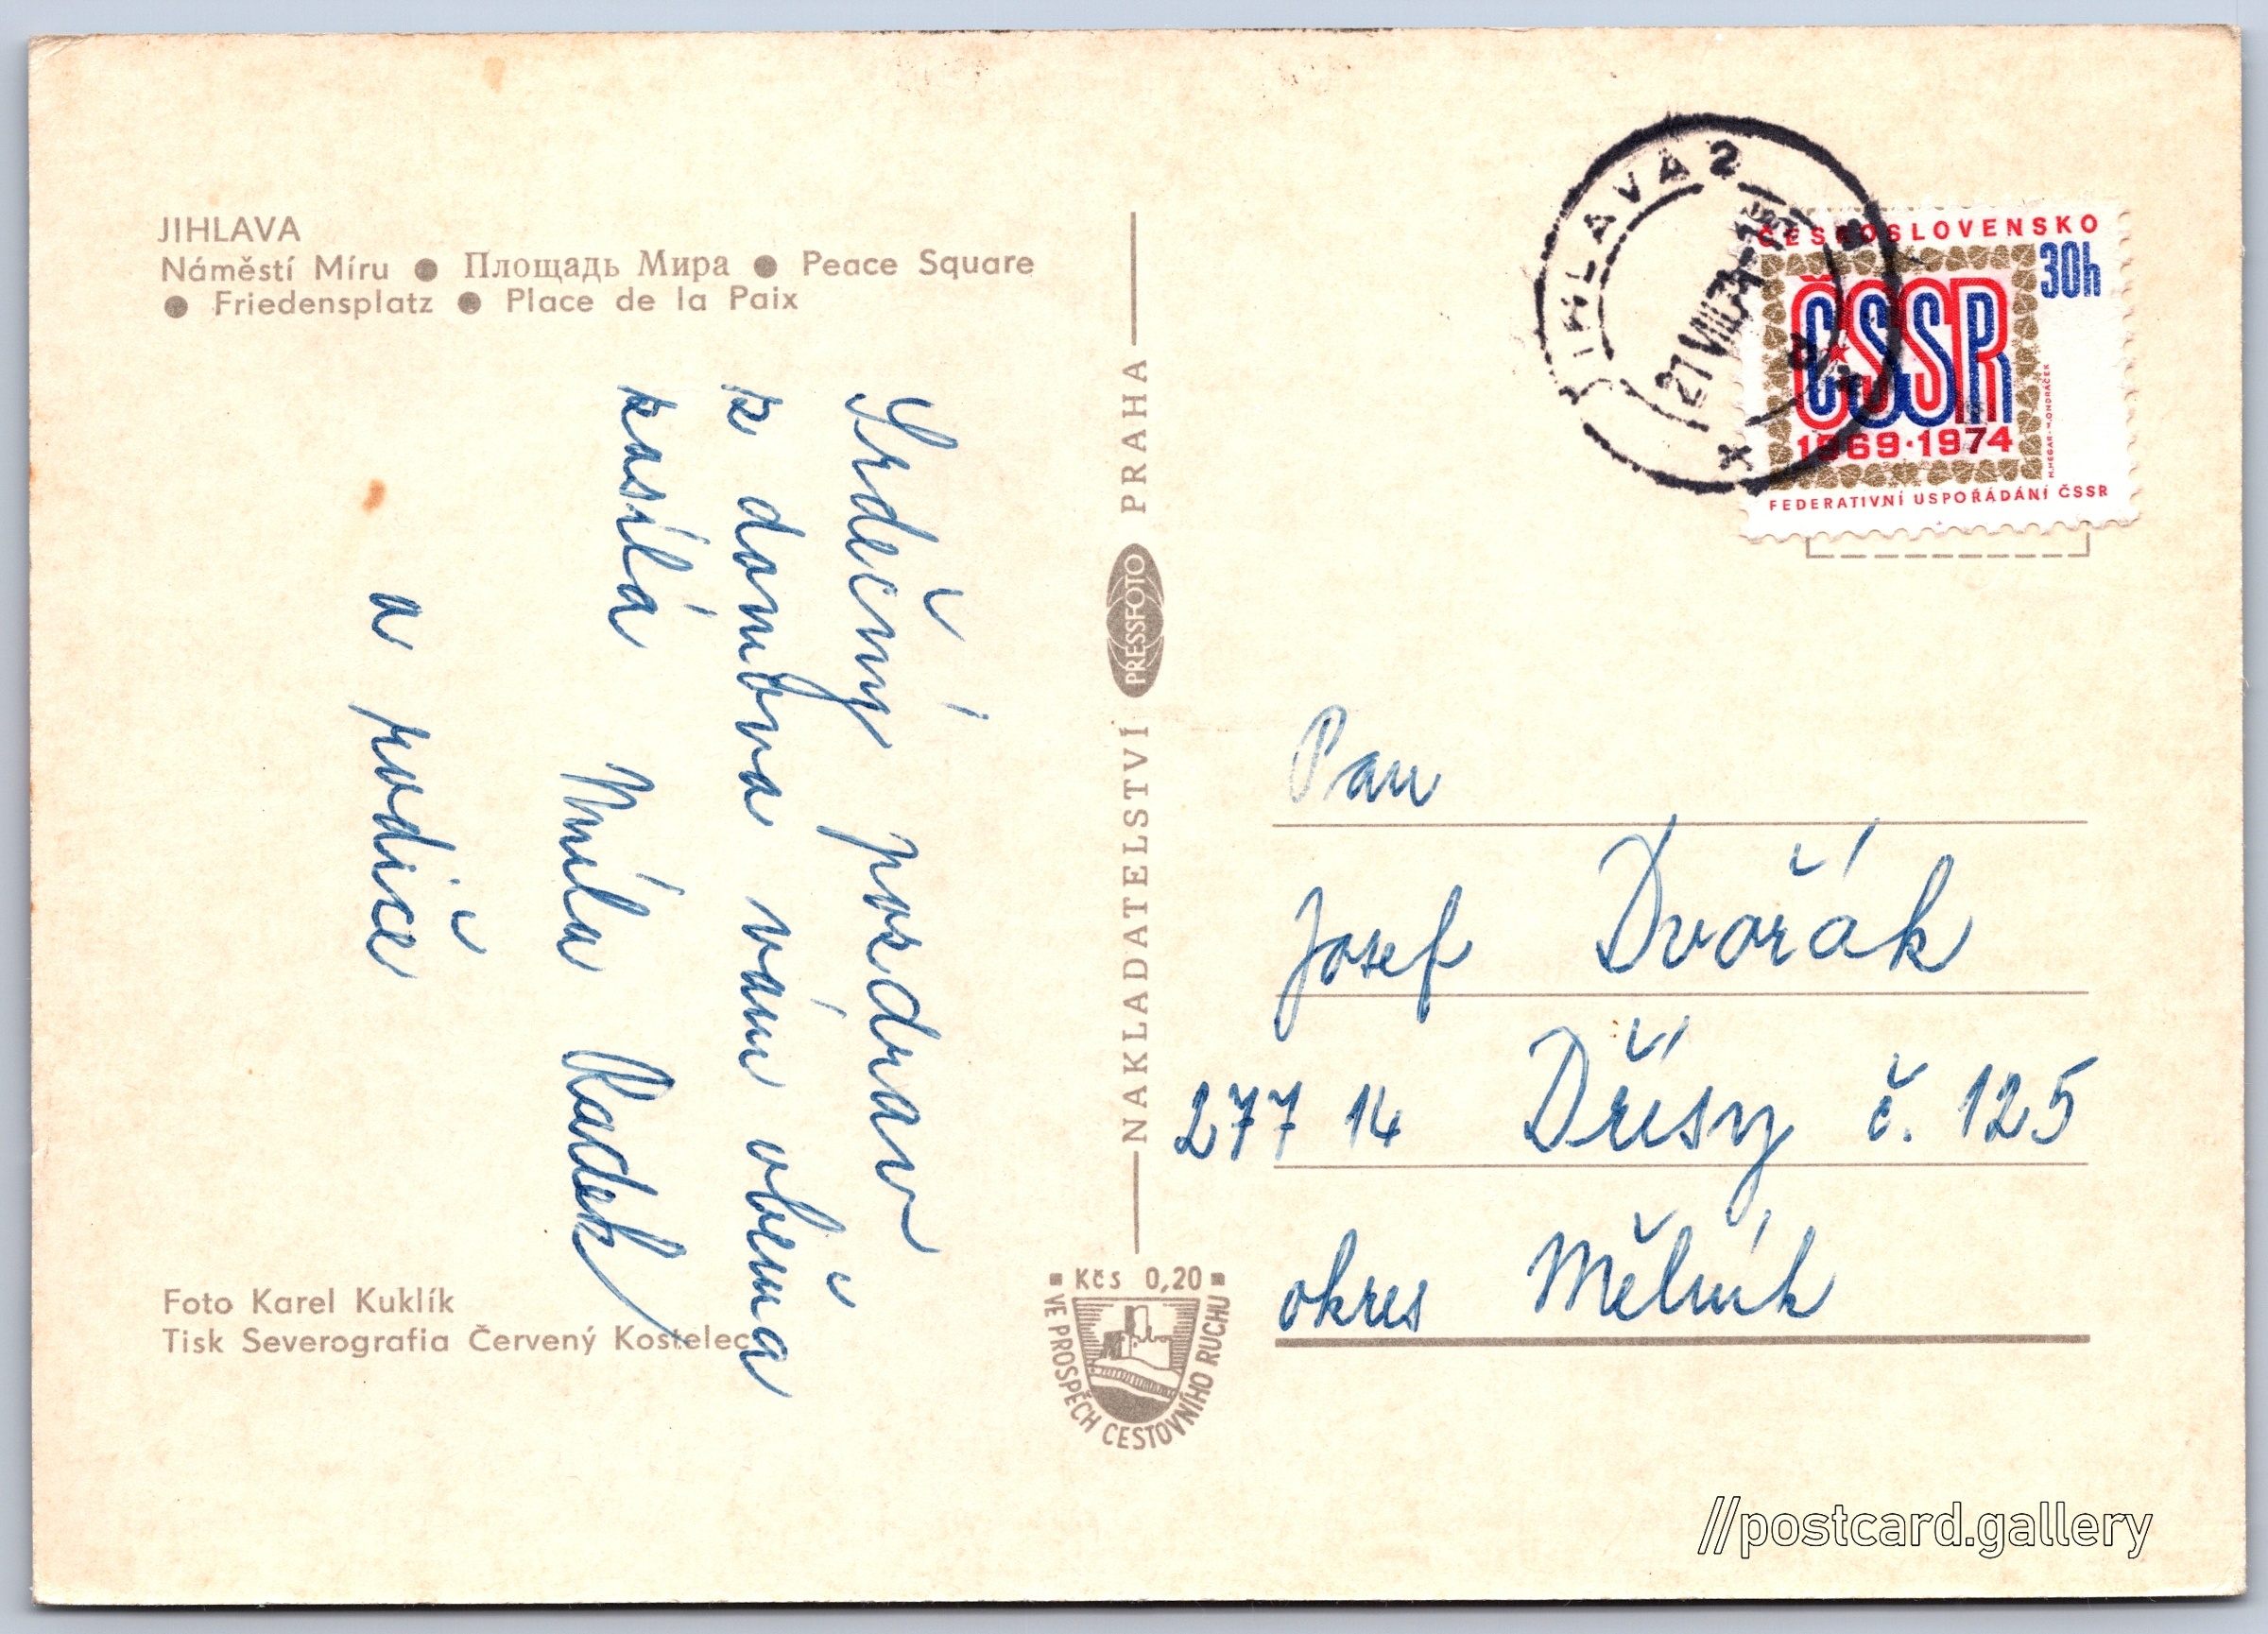 JIHLAVA
Náměstí Míru ● Площадь Мира ● Peace Square
● Friedensplatz ● Place de la Paix
Srdečný pozdrav
z domova vám oběma
zasílá Míla Radek
a rodiče
Foto Karel Kuklík
Tisk Severografia Červený Kostelec
NAKLADATELSTVÍ PRESSFOTO PRAHA
Kčs 0,20
VE PROSPĚCH CESTOVNÍHO RUCHU
JIHLAVA 2
27.VIII.74-
ČESKOSLOVENSKO
30h
ČSSR
1969·1974
FEDERATIVNÍ USPOŘÁDÁNÍ ČSSR
Pan
Josef Dvořák
277 14 Dřísy č. 125
okres Mělník
//postcard.gallery